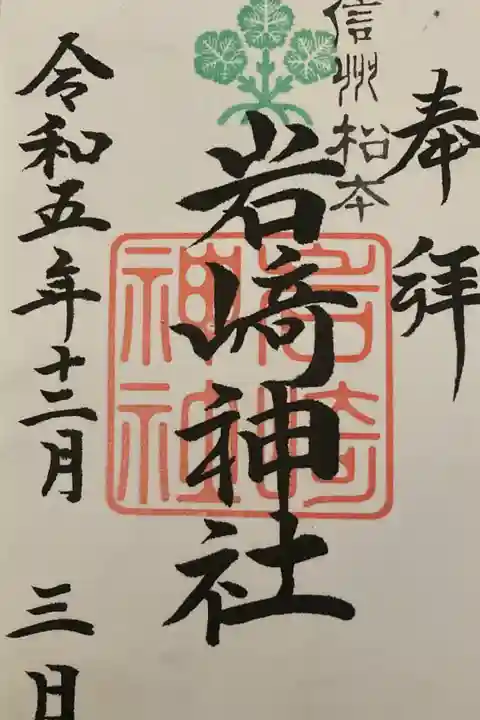 奉拝
信州松本
岩﨑神社
岩﨑神社
令和五年十二月三日